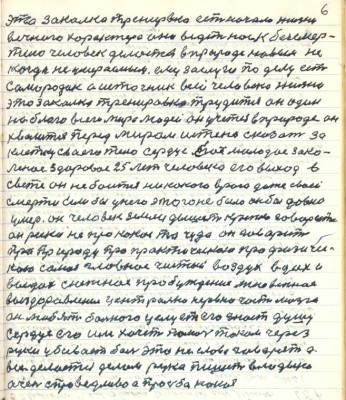 6
это закалка тренировка есть начало жизни
вечного характера она ведет нас к бессмер-
тию человек делается в природе новым не
когда не умираемым ему заслуги по делу есть
самородак а источник всей человека жизни
это закалка тренировка трудится он один
на благо всего мира людей он учится в природе он
хвалится перед миром истено сказать за
клетку своего тело сердце молодое зако-
леное здоровое 25 лет человека его выход в
свете он не боится никакого врага даже своей
смерти если бы у него этого не было он бы давно
умер. он человек земли дышет крепко а говорить
он резко не про какое то чудо он говорит
про природу про практическое про физиче-
кою самое главное чистый воздух вдох и
выдох снежное пробуждение мгновенное
выздоравление центрально нервно часть мозга
он любит больного человека знает душу
сердце его им хочет помоч током через
руки убивает боль это не слова говорят а
все делается делом рука пишет владыка
очен справедливо а просьба какая